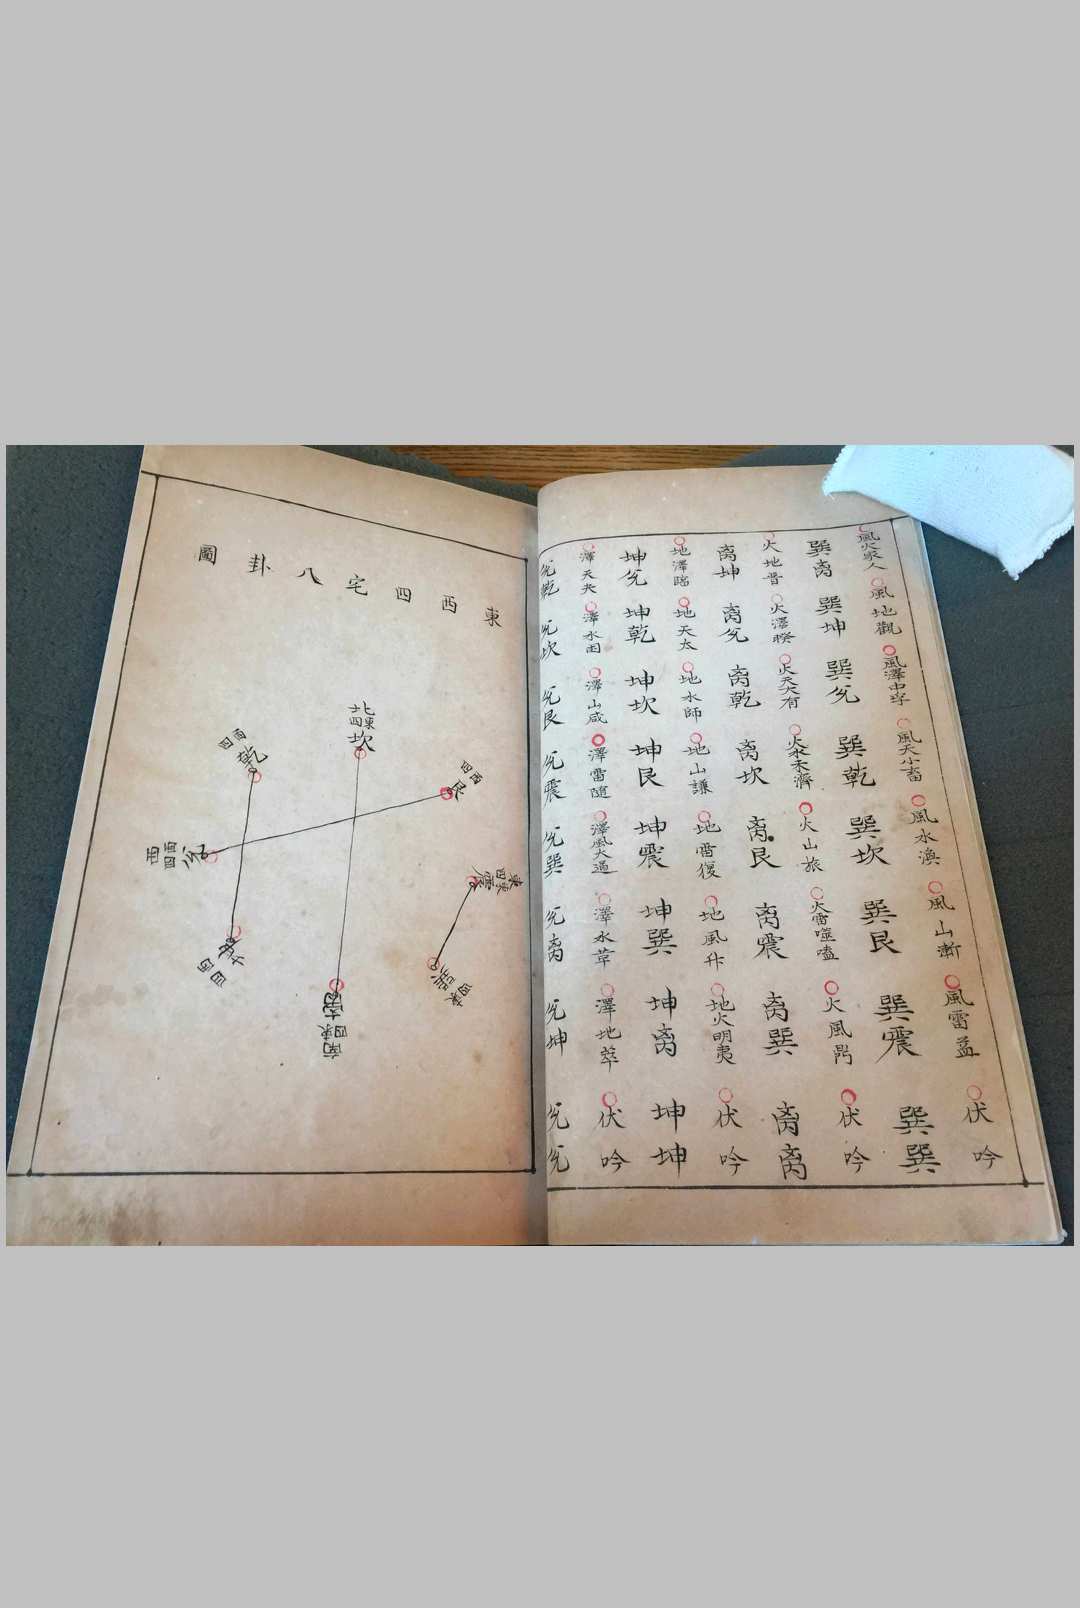 風火家人 風地觀 風澤中孚 風天小畜 風水渙 風山漸 風雷益 伏吟
巽离 巽坤 巽兊 巽乾 巽坎 巽艮 巽震 巽巽
火地晋 火澤睽 火天大有 火水未濟 火山旅 火雷噬嗑 火風鼎 伏吟
离坤 离兊 离乾 离坎 离艮 离震 离巽 离离
地澤臨 地天太 地水師 地山謙 地雷復 地風升 地火明夷 伏吟
坤兊 坤乾 坤坎 坤艮 坤震 坤巽 坤离 坤坤
澤天夬 澤水困 澤山咸 澤雷隨 澤風大過 澤水革 澤地萃 伏吟
兊乾 兊坎 兊艮 兊震 兊巽 兊离 兊坤 兊兊
東西四宅八卦圖
北東四坎
西四艮
東東四震
東四巽
南東四离
西四坤
西西四兊
西四乾